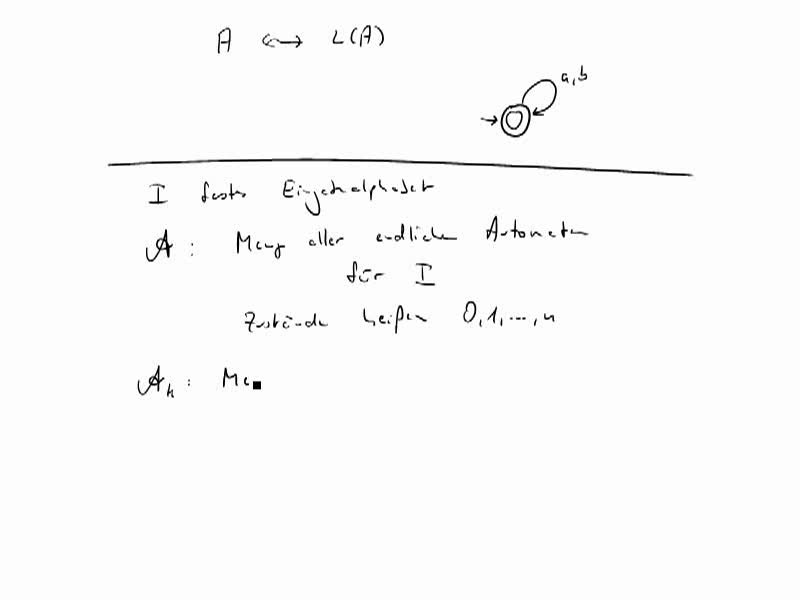 A ↔ L(A)
a,b
I festes Eingabealphabet
𝒜 : Menge aller endlichen Automaten
für I
Zustände heißen 0,1,...,n
𝒜ₙ : Me